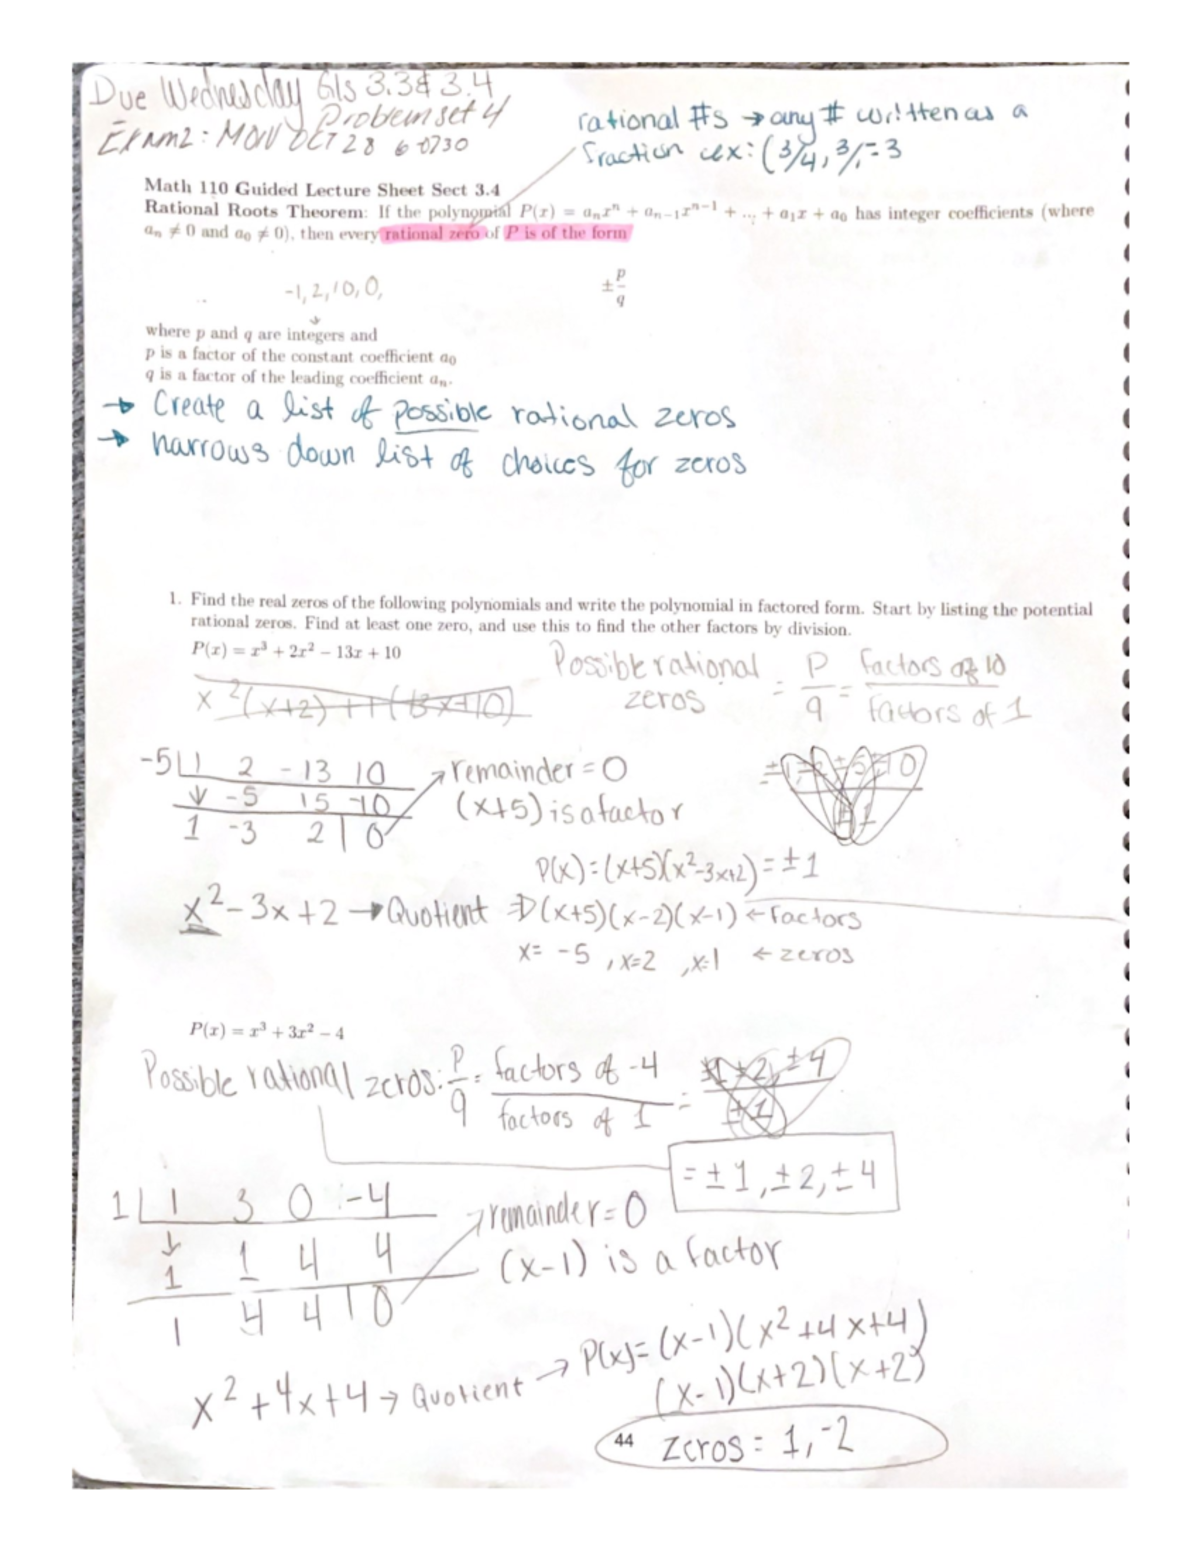 Due Wednesday Gls 3.3 & 3.4
Problem set 4
Exam 2: MON OCT 28 6-0730
rational #s → any # written as a
fraction ex: (3/4, 3/1 = 3
Math 110 Guided Lecture Sheet Sect 3.4
Rational Roots Theorem: If the polynomial P(x) = aₙxⁿ + aₙ₋₁xⁿ⁻¹ + ... + a₁x + a₀ has integer coefficients (where
aₙ ≠ 0 and a₀ ≠ 0), then every rational zero of P is of the form
-1, 2, 10, 0,
± p/q
where p and q are integers and
p is a factor of the constant coefficient a₀
q is a factor of the leading coefficient aₙ.
→ Create a list of possible rational zeros
→ narrows down list of choices for zeros
1. Find the real zeros of the following polynomials and write the polynomial in factored form. Start by listing the potential
rational zeros. Find at least one zero, and use this to find the other factors by division.
P(x) = x³ + 2x² − 13x + 10
Possible rational zeros = p/q = factors of 10 / factors of 1
-5 | 1 2 -13 10
↓ -5 15 -10
1 -3 2 | 0
→ remainder = 0
(x+5) is a factor
P(x) = (x+5)(x²-3x+2) = ±1
x² - 3x + 2 → Quotient ⇒ (x+5)(x-2)(x-1) ← factors
x = -5, x=2, x=1 ← zeros
P(x) = x³ + 3x² − 4
Possible rational zeros: p/q = factors of -4 / factors of 1 = ±1 ±2, ±4 / ±1
= ±1, ±2, ±4
1 | 1 3 0 -4
↓ 1 4 4
1
1 4 4 | 0
→ remainder = 0
(x-1) is a factor
x² + 4x + 4 → Quotient → P(x) = (x-1)(x² + 4x + 4)
(x-1)(x+2)(x+2)
44 zeros = 1, -2